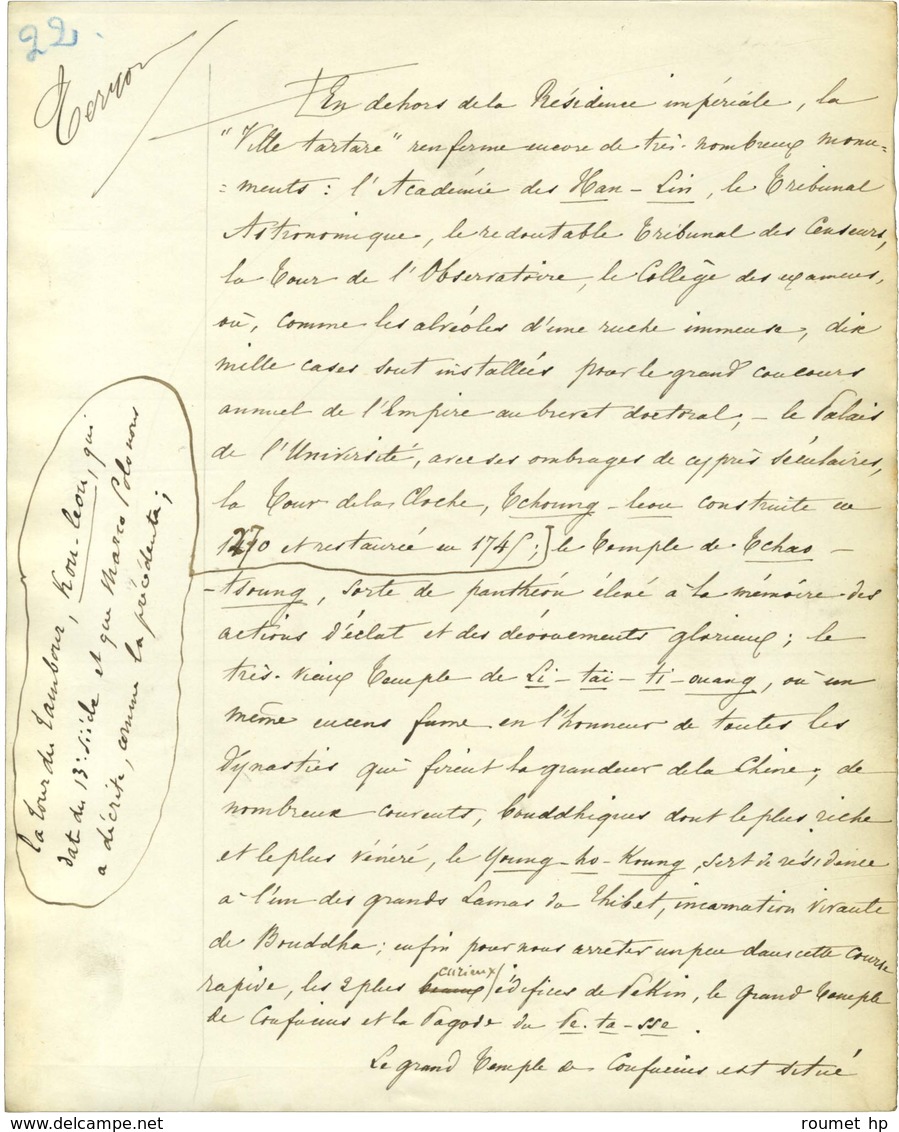 22.
En dehors de la Résidence impériale, la
"Ville tartare" renferme encore de très-nombreux monu=
=ments : l'Académie des Han-Lin, le Tribunal
Astronomique, le redoutable Tribunal des Censeurs,
la Tour de l'Observatoire, le Collège des examens,
où, comme les alvéoles d'une ruche immense, dix
mille cases sont installées pour le grand concours
annuel de l'Empire au brevet doctoral, - le Palais
de l'Université, avec ses ombrages de cyprès séculaires,
la Tour de la Cloche, Tchoung-leou construite en
1270 et restaurée en 1745 ; le Temple de Tchao-
-tsoung, sorte de panthéon élevé à la mémoire des
actions d'éclat et des dévouements glorieux ; le
très-vieux Temple de Li-taï-ti-ouang, où un
même encens fume en l'honneur de toutes les
dynasties qui firent la grandeur de la Chine, de
nombreux couvents, bouddhiques dont le plus riche
et le plus vénéré, le Young-ho-Koung, sert de résidence
à l'un des grands Lamas du Thibet, incarnation vivante
de Bouddha ; enfin pour nous arrêter un peu dans cette course
rapide, les 2 plus curieux édifices de Pékin, le grand Temple
de Confucius et la Pagode du Pe-ta-sse.
Le grand Temple de Confucius est situé
la tour du Tambour, Kou-leou, qui
date du 13e siècle et que Marco Polo nous
a décrite, comme la précédente ;
roumet hp